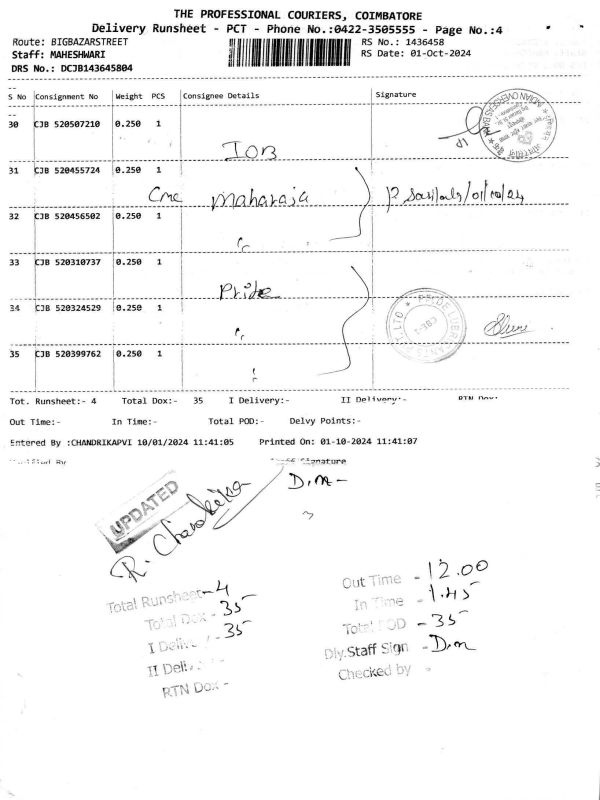 THE PROFESSIONAL COURIERS, COIMBATORE
Delivery Runsheet - PCT - Phone No.:0422-3505555 - Page No.:4
Route: BIGBAZARSTREET RS No.: 1436458
Staff: MAHESHWARI RS Date: 01-Oct-2024
DRS No.: DCJB143645804
S No Consignment No Weight PCS Consignee Details Signature
30 CJB 520507210 0.250 1 IOB
INDIAN OVERSEAS BANK
31 CJB 520455724 0.250 1
Cmc Maharaja
32 CJB 520456502 0.250 1
33 CJB 520310737 0.250 1
Pride
34 CJB 520324529 0.250 1
PRIDE LUBRICANTS
CBE-1
35 CJB 520399762 0.250 1
Tot. Runsheet:- 4 Total Dox:- 35 I Delivery:- II Delivery:- RTN Dox:-
Out Time:- In Time:- Total POD:- Delvy Points:-
Entered By :CHANDRIKAPVI 10/01/2024 11:41:05 Printed On: 01-10-2024 11:41:07
Signature
UPDATED
D.m-
R. Chandrika
Total Runsheet - 4
Total Dox - 35
I Deliv - 35
II Deliv
RTN Dox -
Out Time - 12.00
In Time - 1.45
Total POD - 35
Dly.Staff Sign - D.m
Checked by -